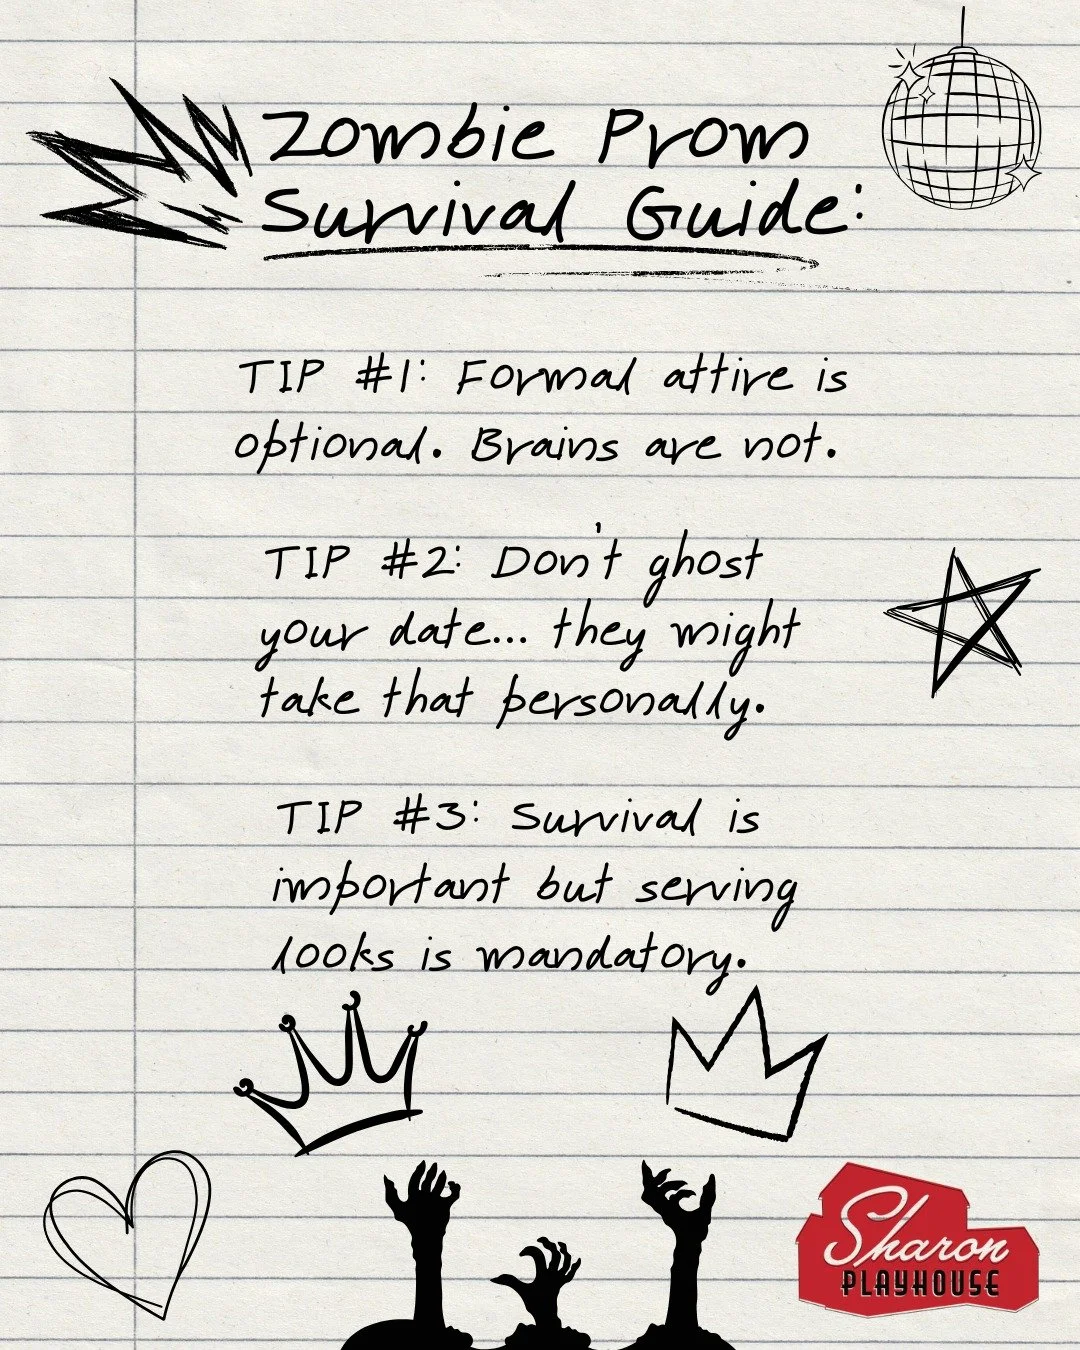 Zombie Prom
Survival Guide:
TIP #1: Formal attire is
optional. Brains are not.
TIP #2: Don't ghost
your date... they might
take that personally.
TIP #3: Survival is
important but serving
looks is mandatory.
Sharon
PLAYHOUSE